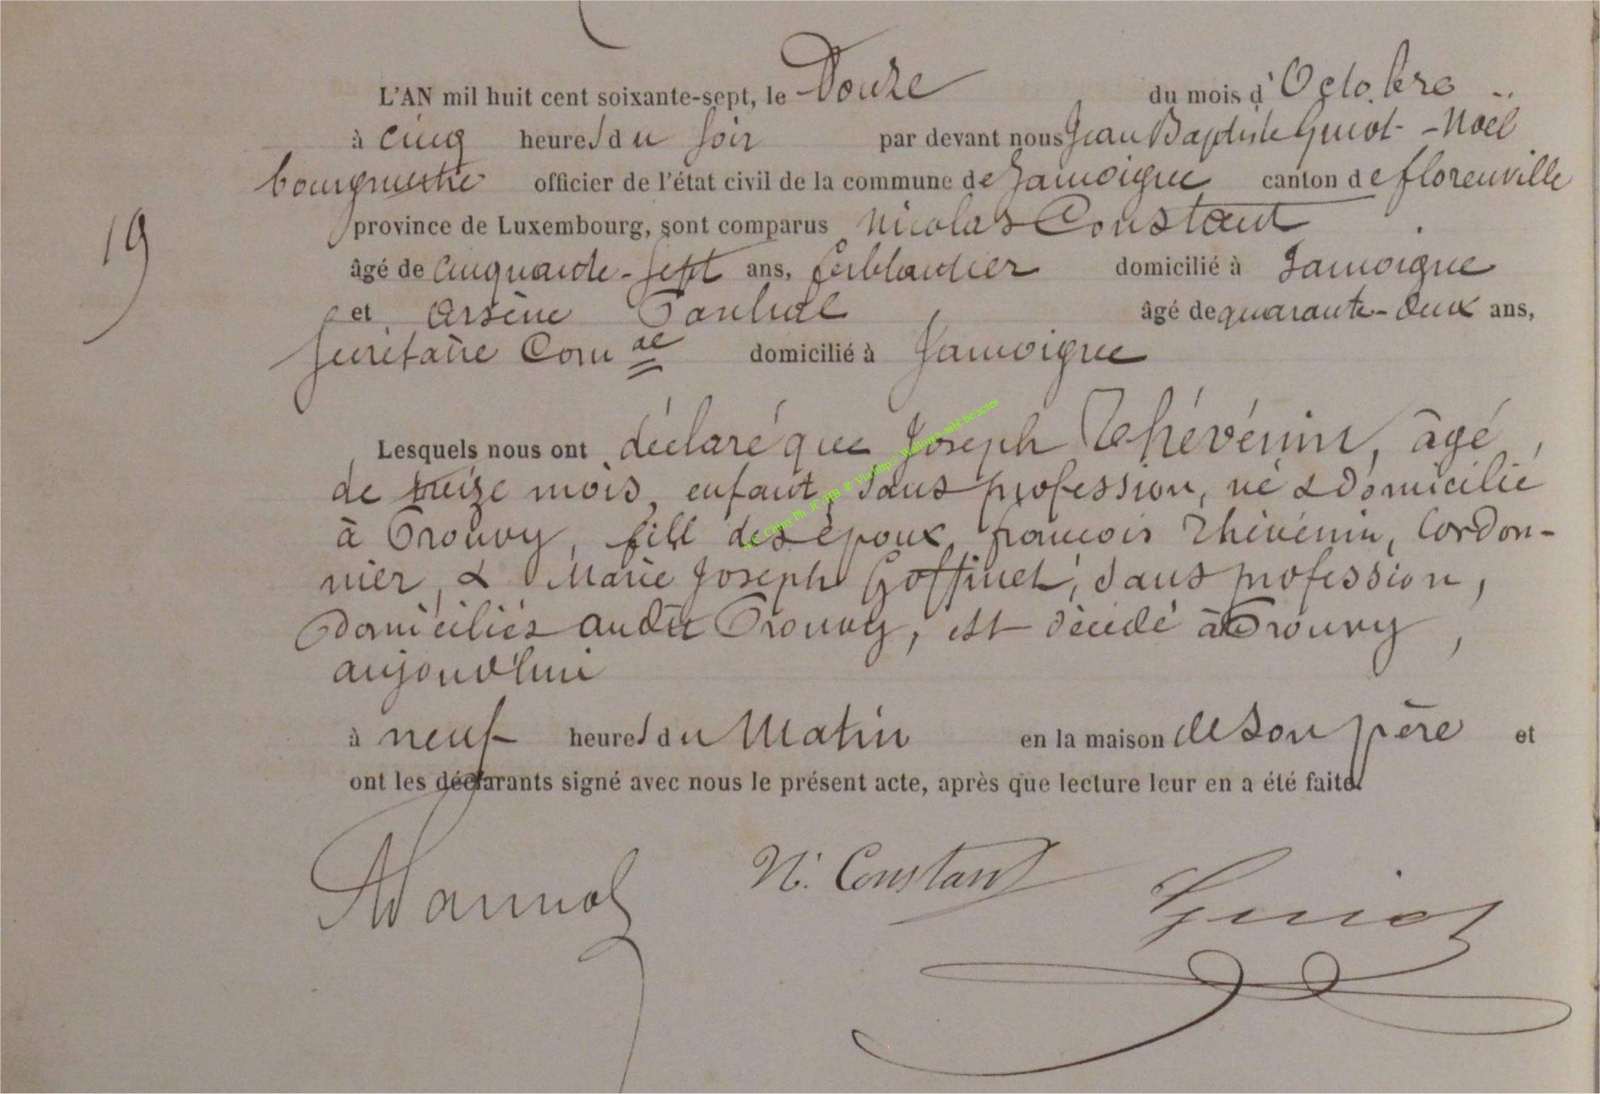 L'AN mil huit cent soixante-sept, le Douze du mois d'Octobre
à cinq heures du soir par devant nous Jean Baptiste Guiot-Noël
bourgmestre officier de l'état civil de la commune de Jamoigne canton de florenville
19 province de Luxembourg, sont comparus Nicolas Constant
âgé de cinquante-sept ans, ferblantier domicilié à Jamoigne
et Arsène âgé de quarante-deux ans,
secrétaire Comal domicilié à Jamoigne
Lesquels nous ont déclaré que Joseph Thévénin, âgé
de treize mois, enfant, sans profession, né & domicilié
à Prouvy, fill des époux françois Thévénin, Cordon-
nier, & Marie Joseph Goffinet, sans profession,
Domiciliés audit Prouvy, est décédé à Prouvy,
aujourd'hui
à neuf heures du Matin en la maison de son père et
ont les déclarants signé avec nous le présent acte, après que lecture leur en a été faite.
N. Constant Guiot